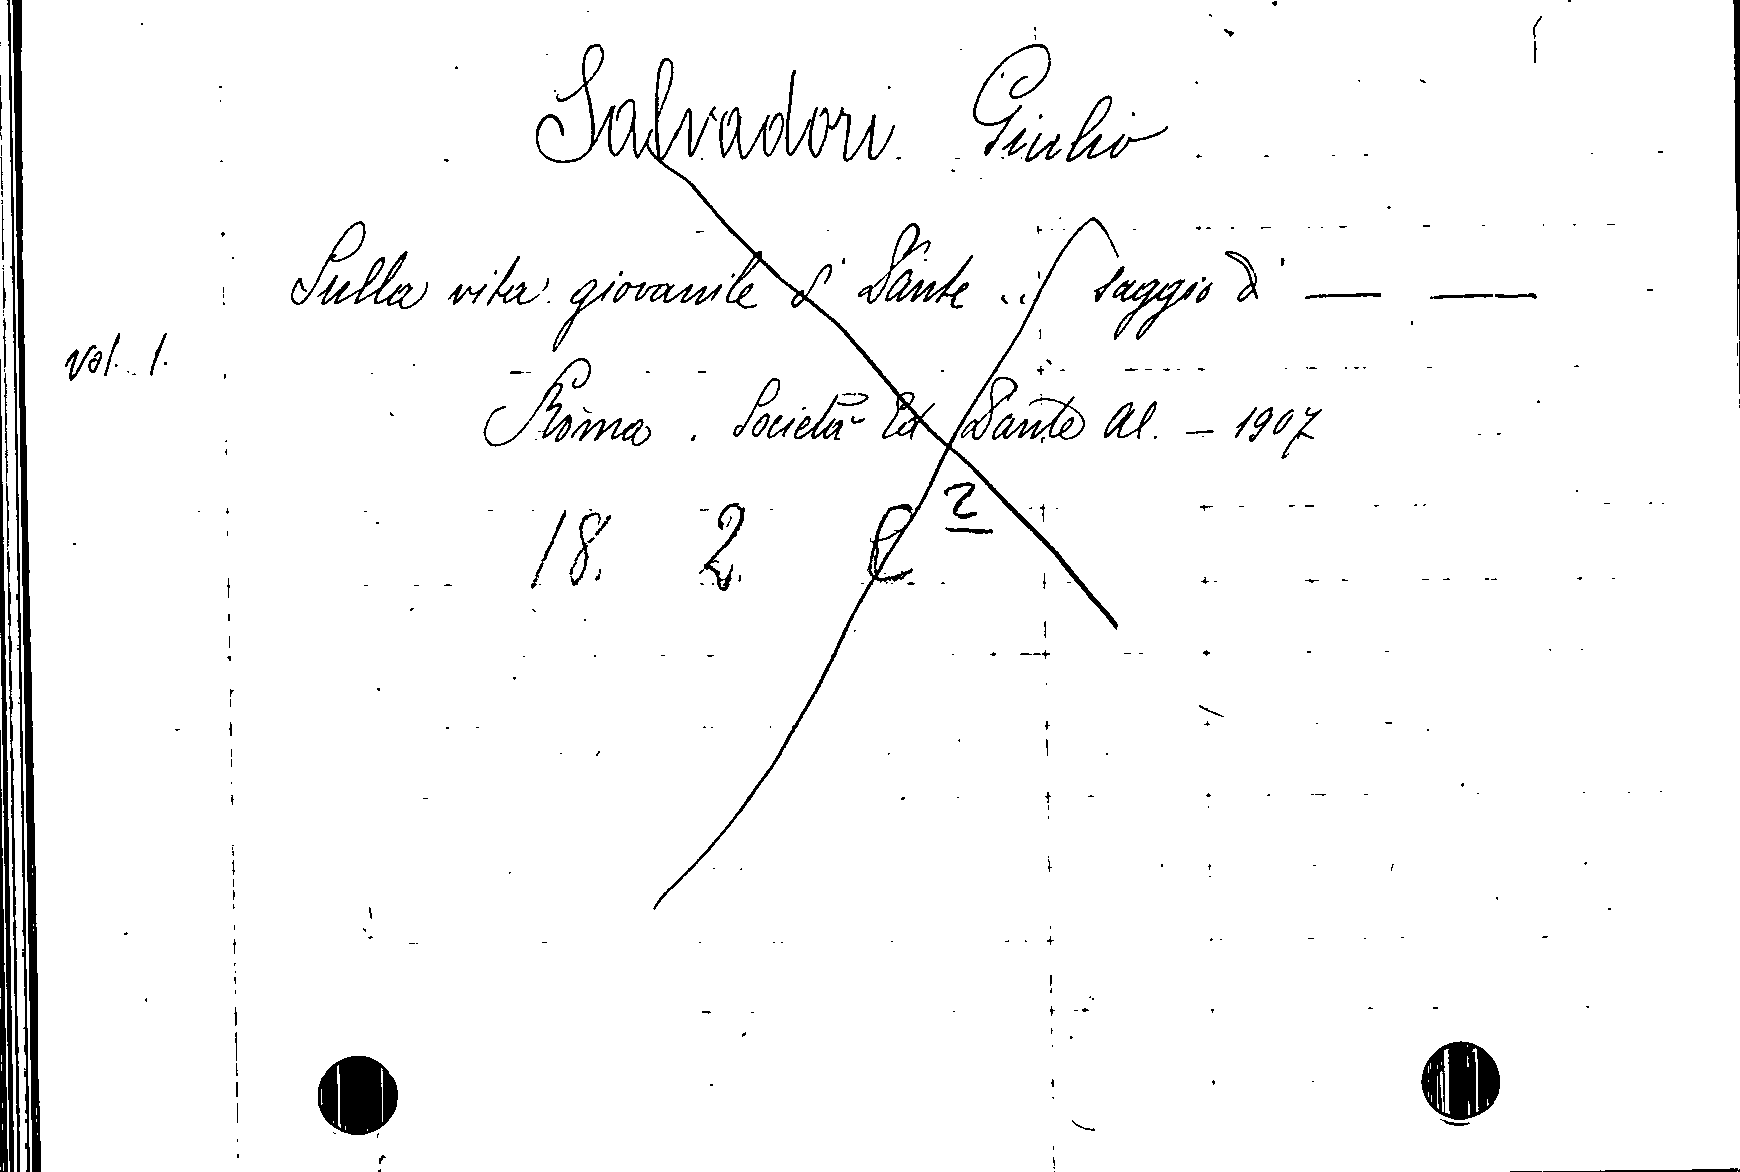 Salvadori Giulio
Sulla vita giovanile di Dante ... saggio di — —
vol. 1.
Roma. Società Ed Dante Al. – 1907
18. 2. C 2